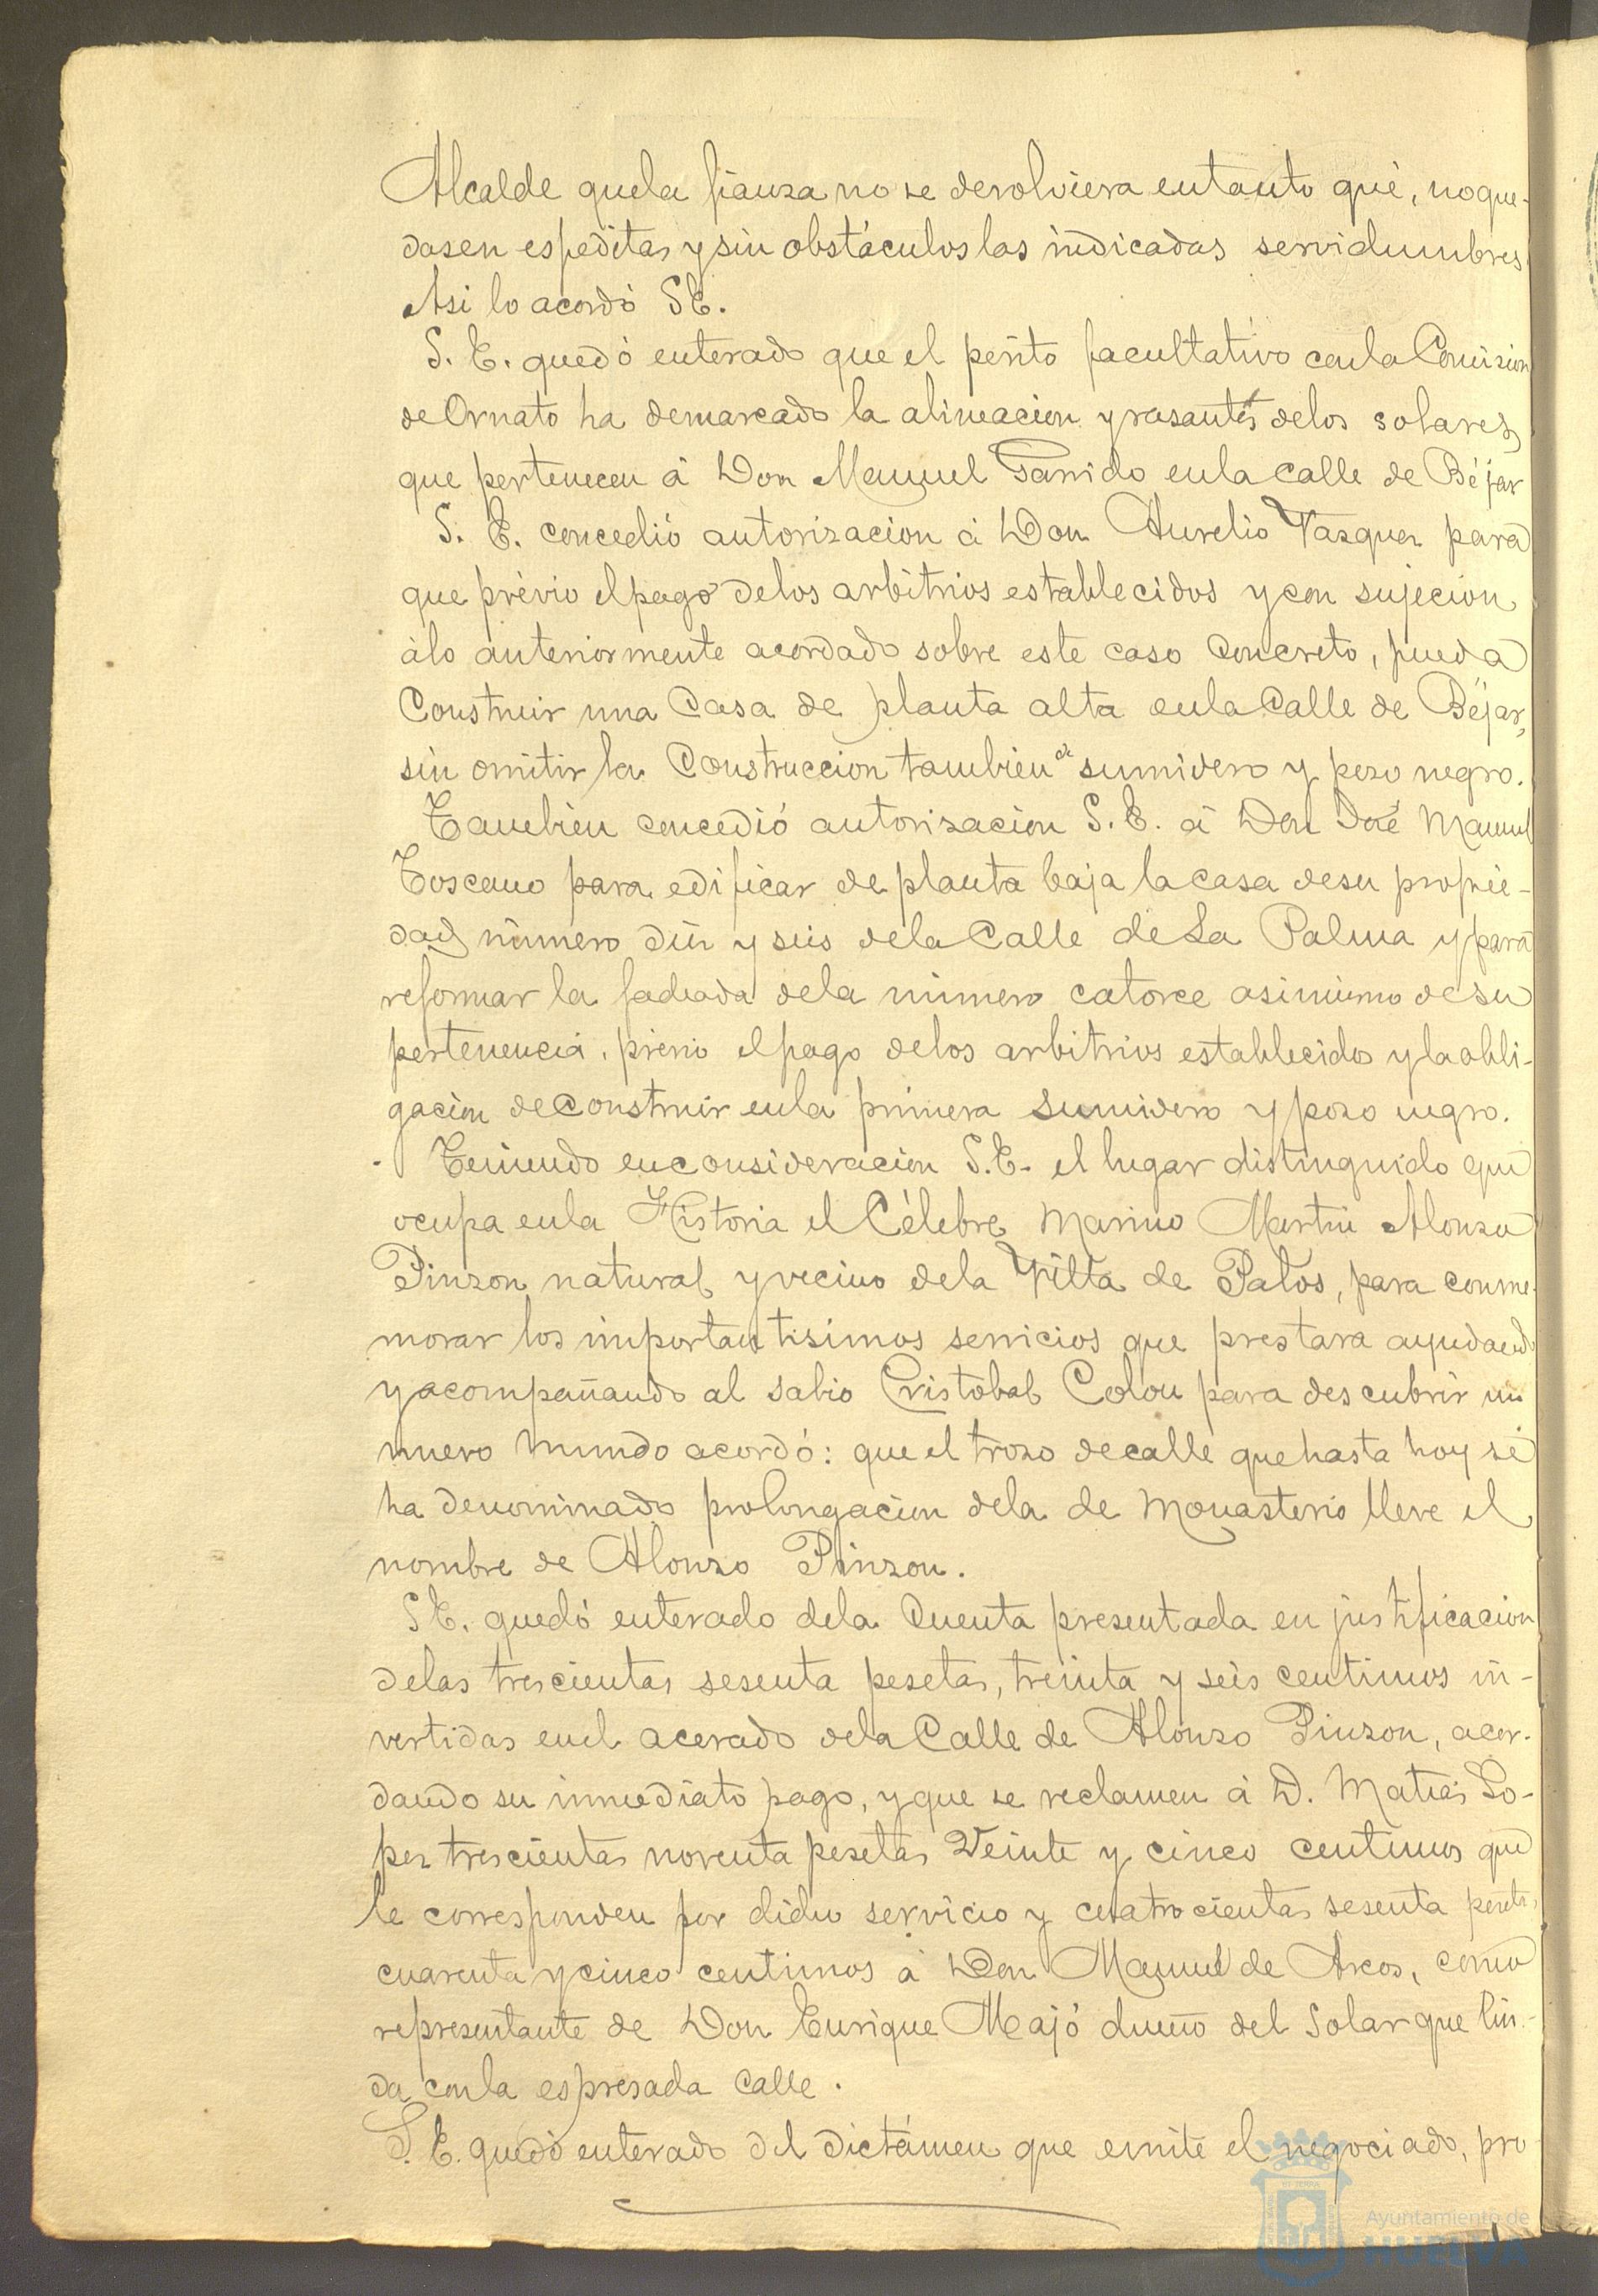 Alcalde que la fianza no se devolviera entanto qué, no que-
dasen espeditas y sin obstáculos las indicadas servidumbres
Asi lo acordó S.E.
S. E. quedó enterado que el perito facultativo con la Comision
de Ornato ha demarcado la alineacion y rasantes de los solares
que pertenecen á Don Manuel Garrido en la calle de Béjar
S. E. concedió autorizacion á Don Aurelio Vazquez para
que prévio el pago de los arbitrios establecidos y con sujecion
á lo anteriormente acordado sobre este caso concreto, pueda
Construir una Casa de planta alta en la Calle de Béjar,
sin omitir la Construccion tambien de sumidero y pozo negro.
Tambien concedió autorizacion S. E. á Don José Manuel
Toscano para edificar de planta baja la casa de su propie-
dad número diez y seis de la Calle de La Palma y para
reformar la fachada de la número catorce asimismo de su
pertenencia, prévio el pago de los arbitrios establecidos y la obli-
gacion de Construir en la primera sumidero y pozo negro.
Teniendo en consideracion S. E. el lugar distinguido que
ocupa en la Historia el Célebre Marino Martin Alonzo
Pinzon natural y vecino de la Villa de Palos, para conme-
morar los importantisimos servicios que prestara ayudando
y acompañando al sabio Cristobal Colon para descubrir un
nuevo mundo acordó: que el trozo de calle que hasta hoy se
ha denominado prolongacion de la de Monasterio lleve el
nombre de Alonzo Pinzon.
S E. quedó enterado de la Cuenta presentada en justificacion
de las trescientas sesenta pesetas, treinta y seis centimos in-
vertidas en el acerado de la Calle de Alonzo Pinzon, acor-
dando su inmediato pago, y que se reclamen á D. Matias Lo-
pez trescientas noventa pesetas Veinte y cinco centimos que
le corresponden por dicho servicio y cuatrocientas sesenta pesetas
cuarenta y cinco centimos á Don Manuel de Arcos, como
representante de Don Enrique Majó dueño del Solar que lin-
da con la espresada calle.
S. E. quedó enterado del dictámen que emite el negociado, pro
Ayuntamiento de
HUELVA